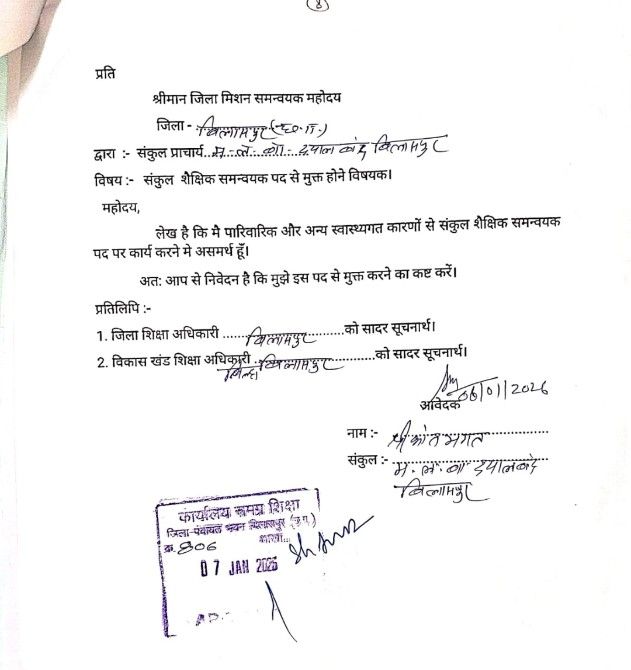 8
प्रति
श्रीमान जिला मिशन समन्वयक महोदय
जिला - बिलासपुर (छ.ग.)
द्वारा :- संकुल प्राचार्य... म.ल.को. दयालबंद बिलासपुर
विषय :- संकुल शैक्षिक समन्वयक पद से मुक्त होने विषयक।
महोदय,
लेख है कि मै पारिवारिक और अन्य स्वास्थ्यगत कारणों से संकुल शैक्षिक समन्वयक
पद पर कार्य करने मे असमर्थ हूँ।
अत: आप से निवेदन है कि मुझे इस पद से मुक्त करने का कष्ट करें।
प्रतिलिपि :-
1. जिला शिक्षा अधिकारी ...... बिलासपुर ......को सादर सूचनार्थ।
2. विकास खंड शिक्षा अधिकारी .. बिल्हा बिलासपुर ......को सादर सूचनार्थ।
06/01/2026
आवेदक
नाम :- श्रीकांत भगत
संकुल :- म.ल.बा दयालबंद
बिलासपुर
कार्यालय समग्र शिक्षा
जिला-पंचायत भवन बिलासपुर (छ.ग.)
क्र. 806 शाखा...
07 JAN 2026